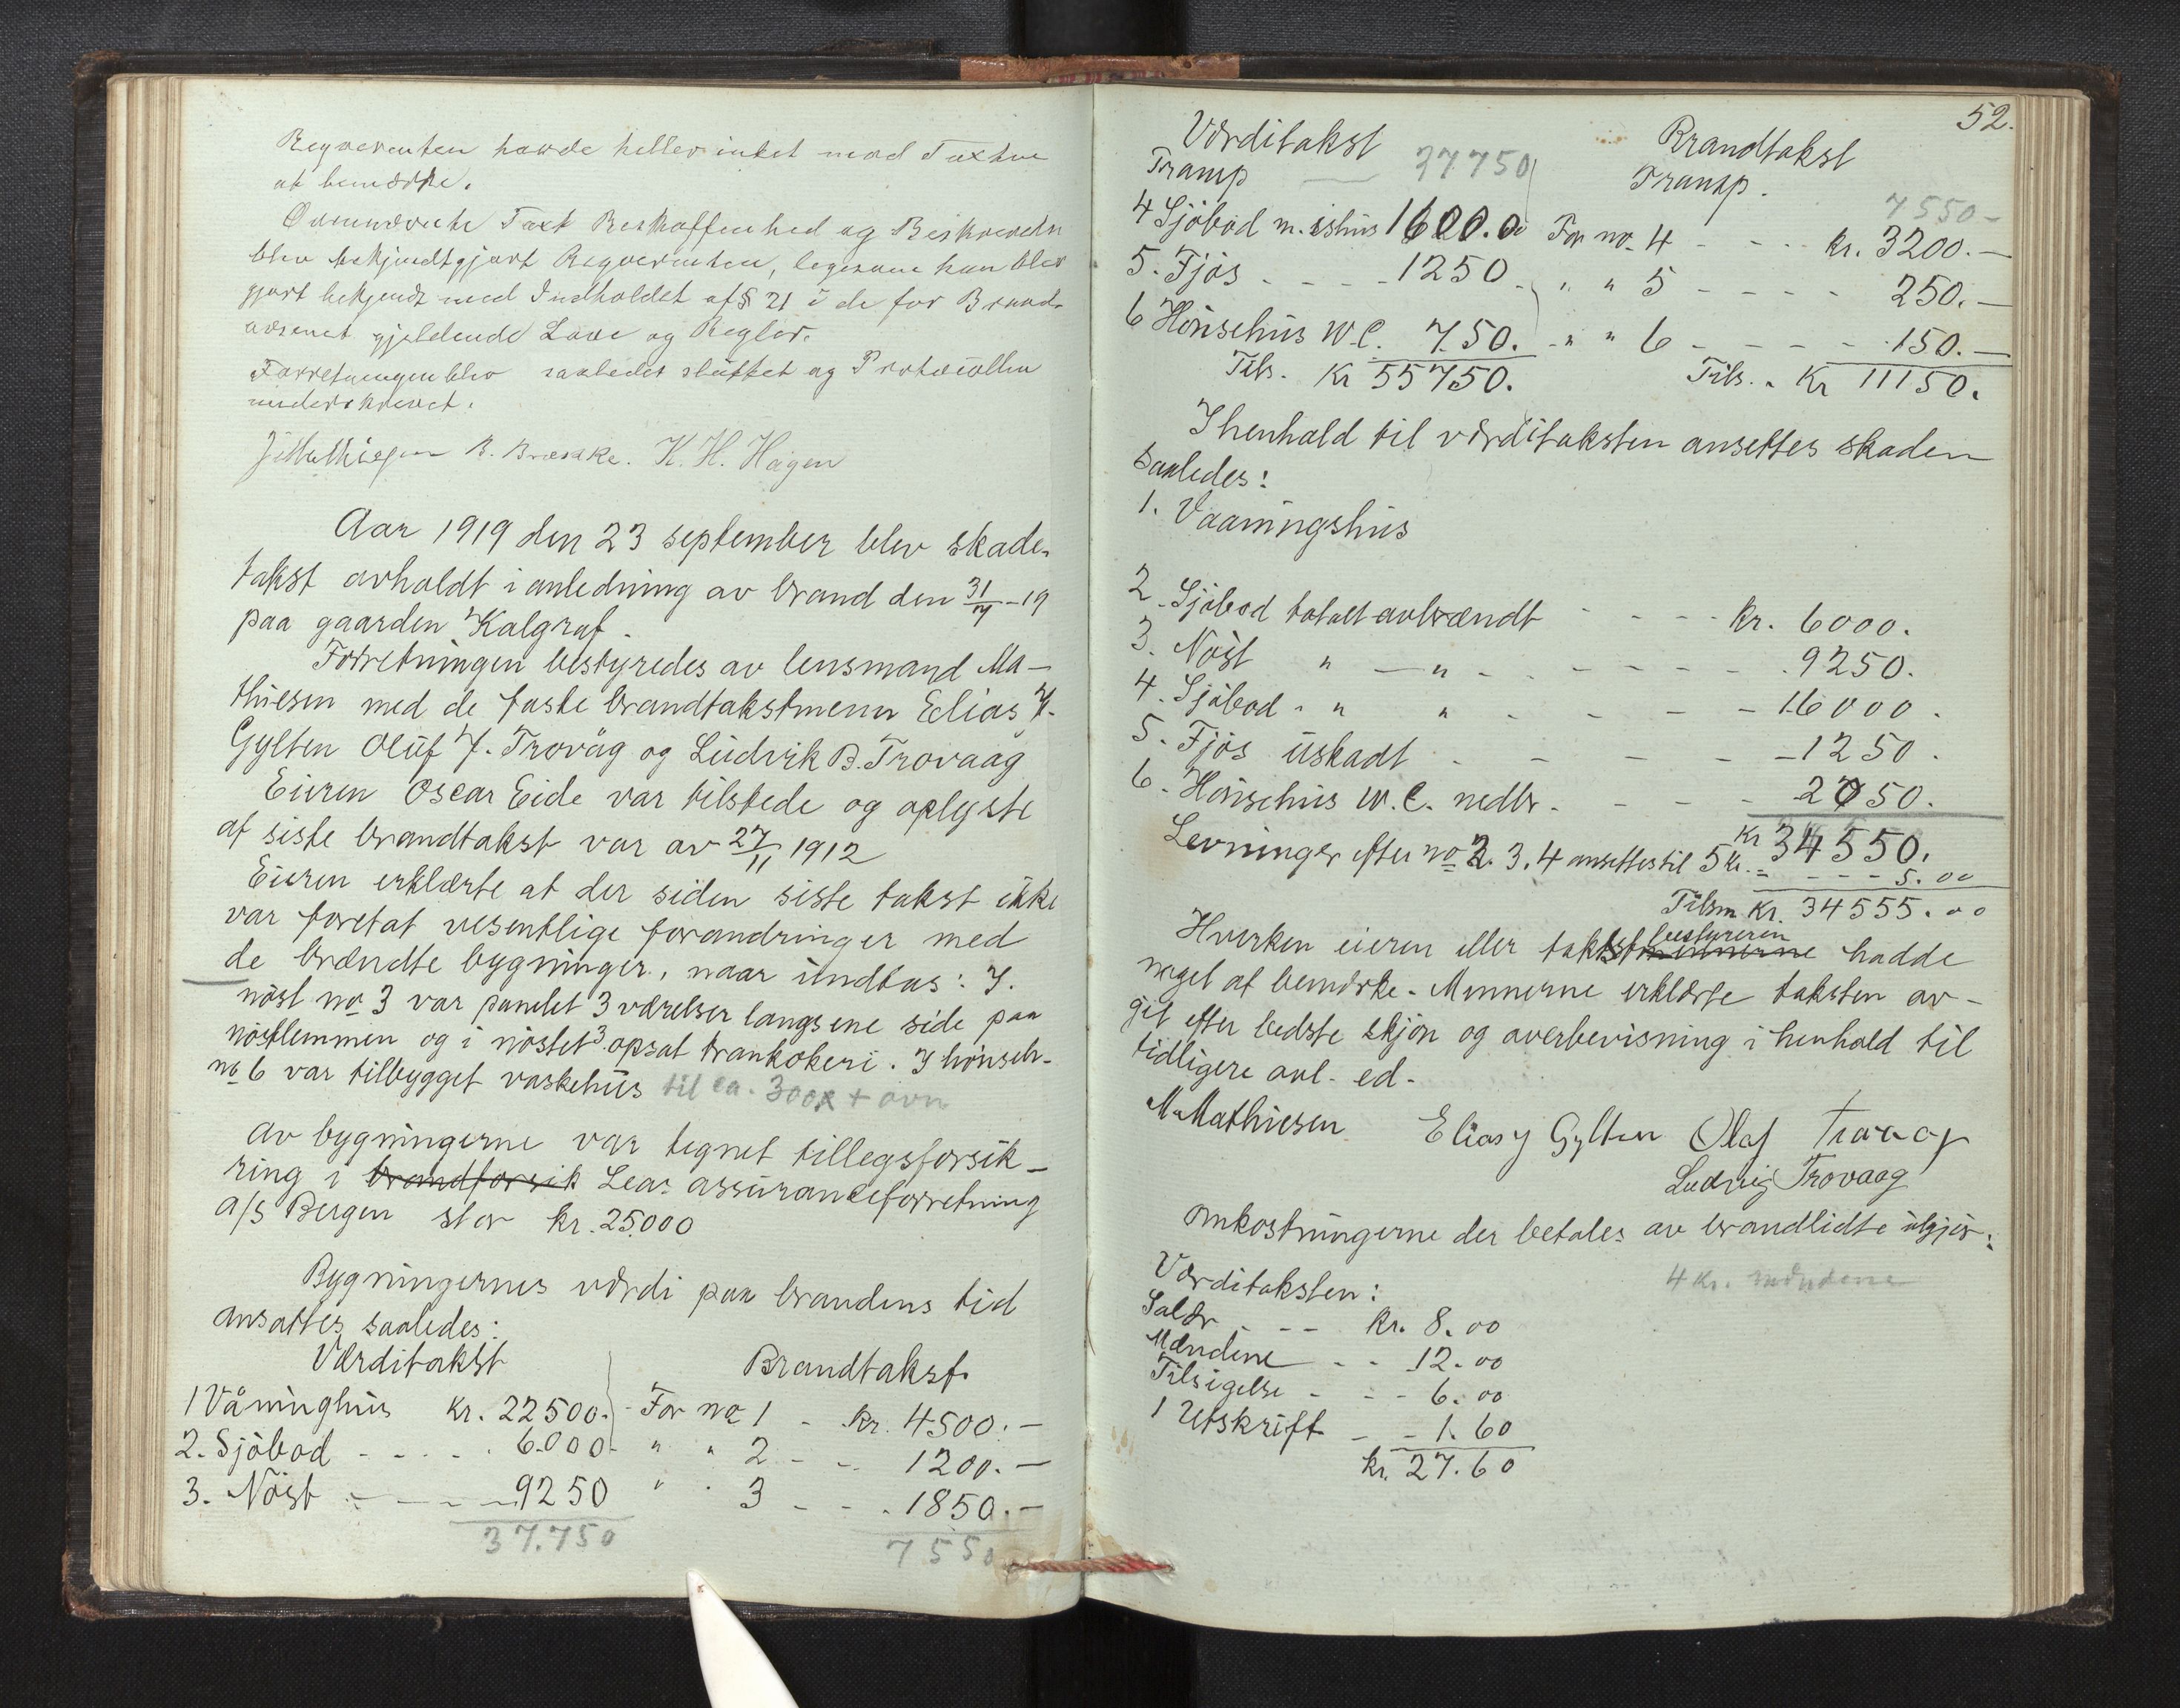 Reqverenten havde heller intet mod Taxten
at bemærke.
Ovennævnte Taxt Beskaffenhed og Beskrivelse
blev bekjendtgjort Reqverenten, ligesom han blev
gjort bekjendt med Indholdet af § 21 i de for Brand-
væsenet gjældende Love og Regler.
Forretningen blev saaledes sluttet og Protocollen
underskrevet.
J Mathiesen B. Brække. K. H. Hagen
Aar 1919 den 23 september blev skade-
takst avholdt i anledning av brand den 31/7-19
paa gaarden Kalgraf.
Forretningen bestyredes av lensmand Ma-
thiesen med de faste brandtakstmenn Elias J.
Gylten Oluf J. Trovåg og Ludvik B. Trovaag
Eieren Oscar Eide var tilstede og oplyste
at siste brandtakst var av 27/11 1912
Eieren erklærte at der siden siste takst ikke
var foretat vesentlige forandringer med
de brændte bygninger, naar undtas: I.
nöst no 3 var panelet 3 værelser langs ene side paa
nöstlemmen og i nöstet 3. opsat trankokeri. I hönseh-
no 6 var tilbygget vaskehus til ca. 300 x + ovn
Av bygningerne var tegnet tillegsforsik-
ring i brandforsik Lea's assuranceforretning
a/s Bergen stor kr. 25000
Bygningernes værdi paa brandens tid
ansattes saaledes:
Værditakst Brandtakst.
1 Våninghus kr. 22500. For no 1 - kr. 4500.—
2. Sjöbod - - - - 6.000 - " " 2 - - 1200.—
3. Nöst - - - - 9250 " " 3 - - 1850.—
37.750 7550
52.
Værditakst Brandtakst
Transp — 37750 Transp. 7550-
4 Sjöbod m. ishus 1600.0 For no. 4 - - - kr. 3200.—
5. Fjös - - - - 1250. " " 5 - - - - 250.—
6 Hönsehus W.C. 750. - " " 6 - - - - 150.—
Tils. Kr 55750. Tils. - Kr 11150.
I henhold til værditaksten ansettes skaden
saaledes:
1. Vaaningshus
2. Sjöbod totalt avbrændt - - - - kr. 6000.
3. Nöst " — " - - - - - - 9250.
4. Sjöbod - " " - - - - 16000.
5. Fjös uskadt - - - - - 1250.
6. Hönsehus W.C. nedbr. - - - - 2050.
kr 34550.
Levninger efter no 2. 3. 4 ansettes til 5 kr. - - - - 5.00
Tilsm. Kr. 34555.00
bestyreren
Hverken eieren eller takstmennerne hadde
noget at bemærke. Mennerne erklærte taksten av-
git efter bedste skjön og overbevisning i henhold til
tidligere avl. ed.
M. Mathiesen Elias J Gylten Olaf Trovaag
Ludvig Trovaag
Omkostningerne der betales av brandlidte utgjör:
4 kr. mændene
Værditaksten:
Salær - - - kr. 8.00
Mændene - - 12.00
Tilsigelse - - - 6.00
1 Utskrift - - 1.60
kr. 27.60